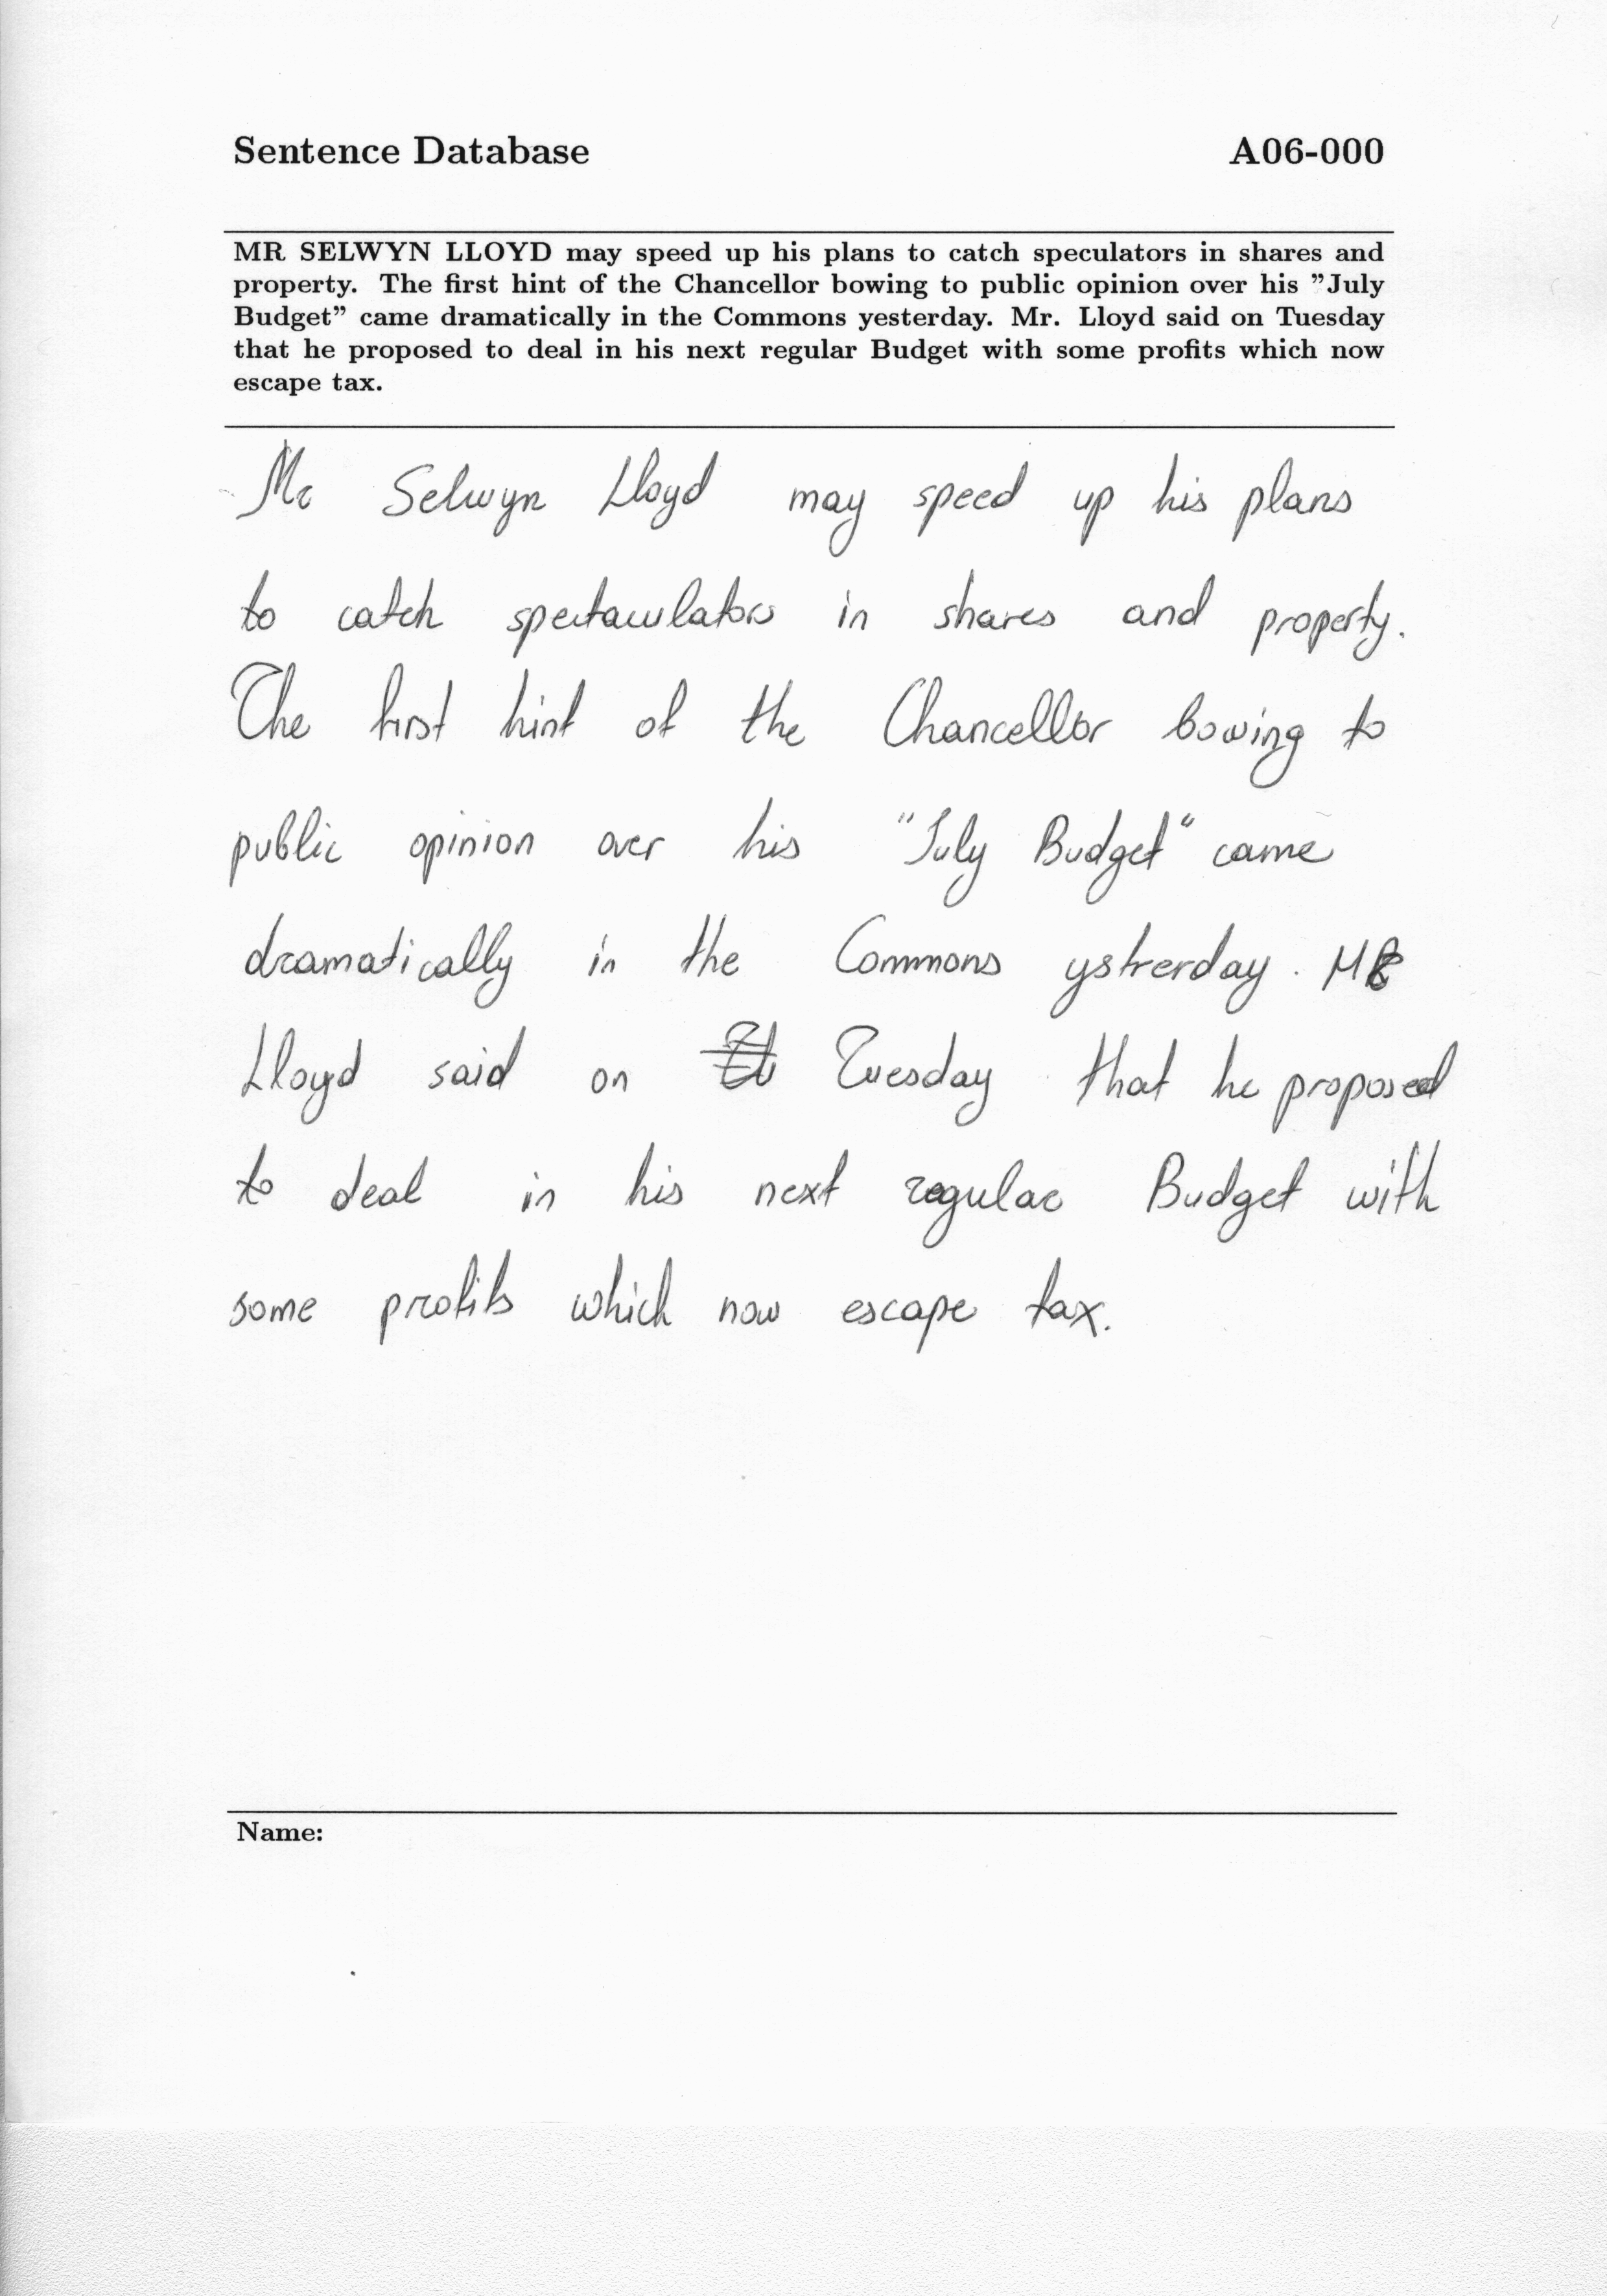 Sentence Database A06-000
MR SELWYN LLOYD may speed up his plans to catch speculators in shares and
property. The first hint of the Chancellor bowing to public opinion over his ”July
Budget” came dramatically in the Commons yesterday. Mr. Lloyd said on Tuesday
that he proposed to deal in his next regular Budget with some profits which now
escape tax.
Mr Selwyn Lloyd may speed up his plans
to catch spectaculators in shares and property.
The first hint of the Chancellor bowing to
public opinion over his "July Budget" came
dramatically in the Commons ystrerday. Mr
Lloyd said on Tuesday that he proposed
to deal in his next regular Budget with
some profits which now escape tax.
Name: